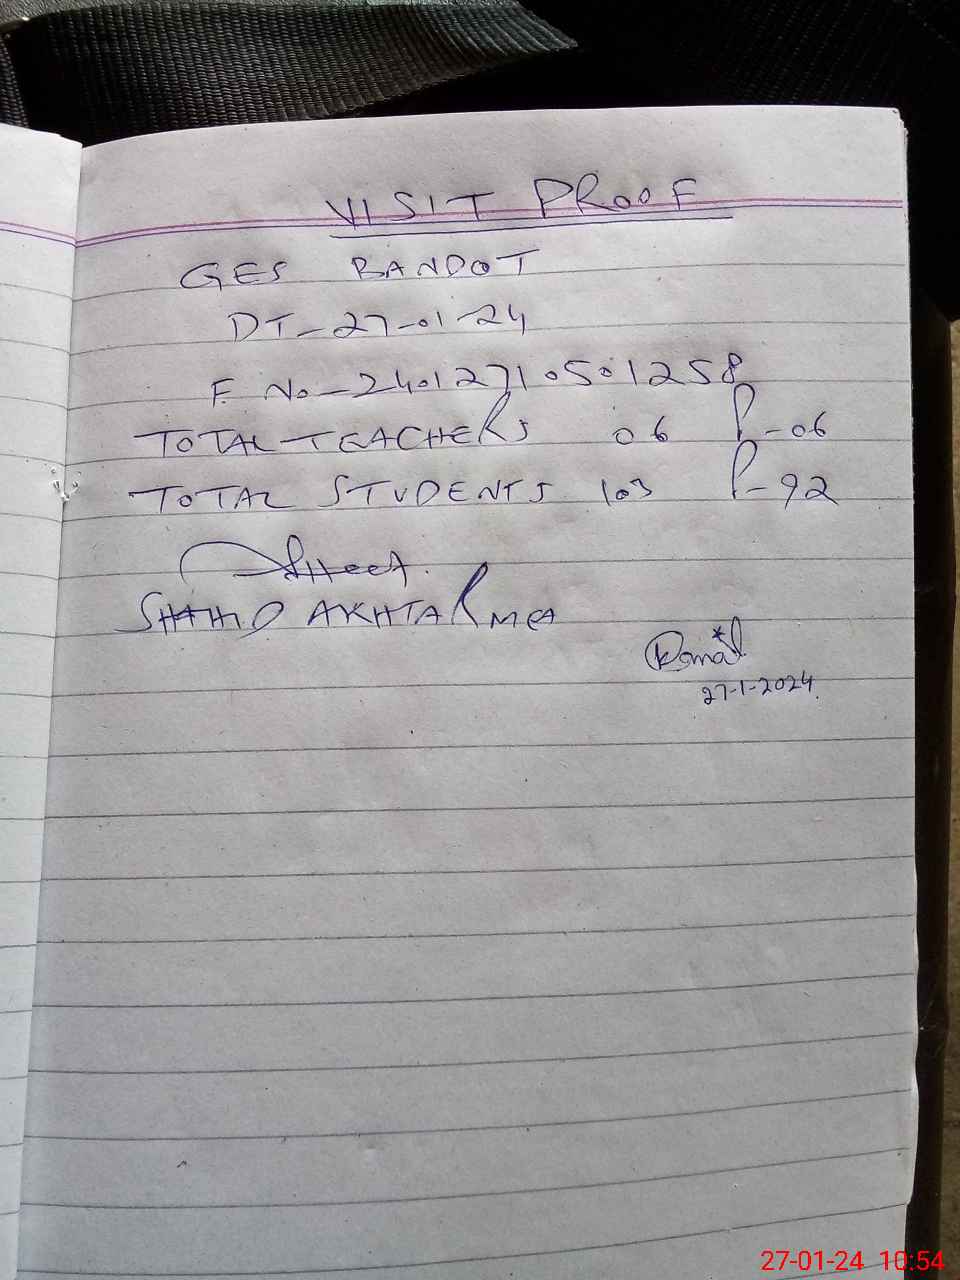 VISIT PROOF
GES BANDOT
DT-27-01-24
F No-2401271050 1258
TOTAL TEACHERS 06 P-06
TOTAL STUDENTS 103 P-92
SHAHID AKHTAR MEA
27-1-2024
27-01-24 10:54